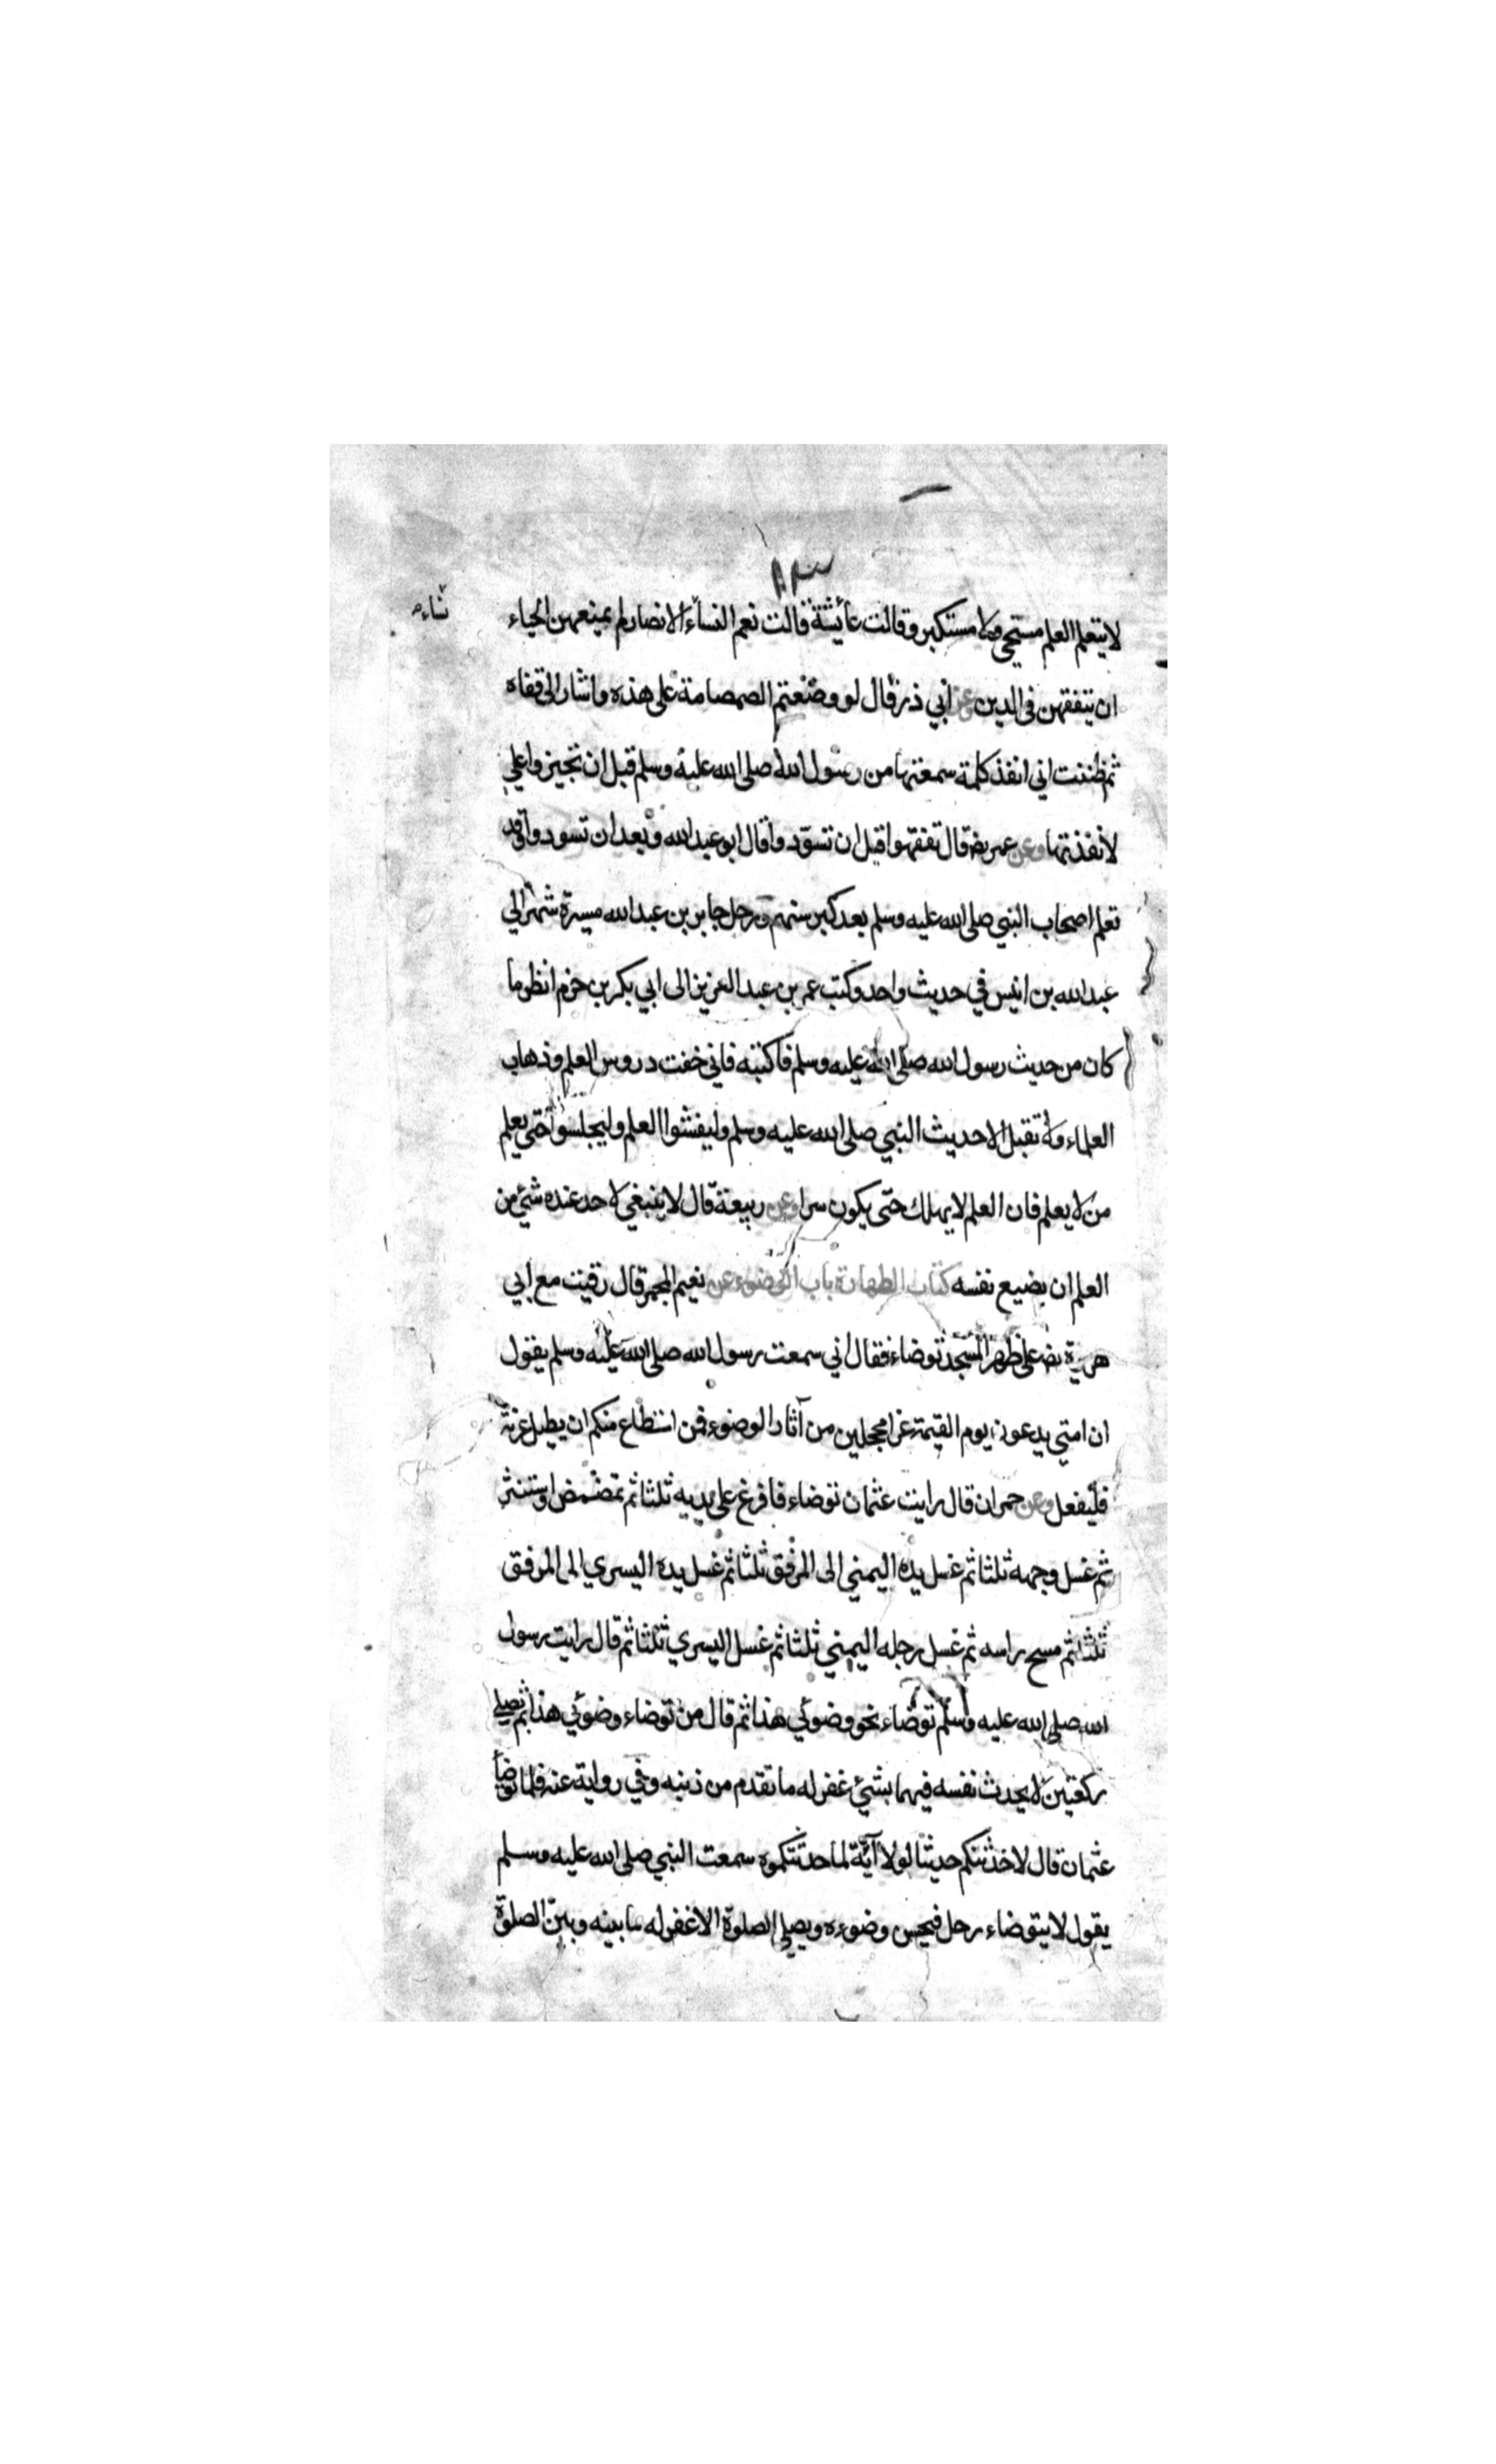 ١٣
نساء
لا يتعلم العلم مستحي ولا مستكبر وقالت عائشة قالت نعم النساء الانصار لم يمنعهن الحياء
ان يتفقهن في الدين وعن ابي ذر قال لو وضعتم الصمصامة على هذه واشار الى قفاه
ثم ظننت اني انفذ كلمة سمعتها من رسول الله صلى الله عليه وسلم قبل ان تجيزوا علي
لأنفذتها وعن عمر رض قال تفقهوا قبل ان تسوّدوا قال ابو عبد الله وبعد ان تسودوا وقد
تعلم اصحاب النبي صلى الله عليه وسلم بعد كبر سنهم ورحل جابر بن عبد الله مسيرة شهر الى
عبد الله بن انيس في حديث واحد وكتب عمر بن عبد العزيز الى ابي بكر بن حزم انظر ما
كان من حديث رسول الله صلى الله عليه وسلم فاكتبه فاني خفت دروس العلم وذهاب
العلماء ولا تقبل الا حديث النبي صلى الله عليه وسلم وليفشوا العلم وليجلسوا حتى يعلم
من لا يعلم فان العلم لا يهلك حتى يكون سرا وعن ربيعة قال لا ينبغي لاحد عنده شيء من
العلم ان يضيع نفسه كتاب الطهارة باب الوضوء عن نعيم المجمر قال رقيت مع ابي
هريرة رض على ظهر المسجد توضاء فقال اني سمعت رسول الله صلى الله عليه وسلم يقول
ان امتي يدعون يوم القيمة غرا محجلين من آثار الوضوء فمن استطاع منكم ان يطيل غرته
فليفعل وعن حمران قال رايت عثمان توضاء فافرغ على يديه ثلثا ثم تمضمض واستنثر
ثم غسل وجهه ثلثا ثم غسل يده اليمني الى المرفق ثلثا ثم غسل يده اليسري الى المرفق
ثلثا ثم مسح براسه ثم غسل رجله اليمني ثلثا ثم غسل اليسري ثلثا ثم قال رايت رسول
الله صلى الله عليه وسلم توضاء نحو وضوئي هذا ثم قال من توضاء وضوئي هذا ثم يصلي
ركعتين لا يحدث نفسه فيهما بشيء غفر له ما تقدم من ذنبه وفي رواية عنه فلما توضأ
عثمان قال لاحدثنكم حديثا لولا آية لما حدثتكموه سمعت النبي صلى الله عليه وسلم
يقول لا يتوضاء رجل فيحسن وضوءه ويصلي الصلوة الا غفر له ما بينه وبين الصلوة